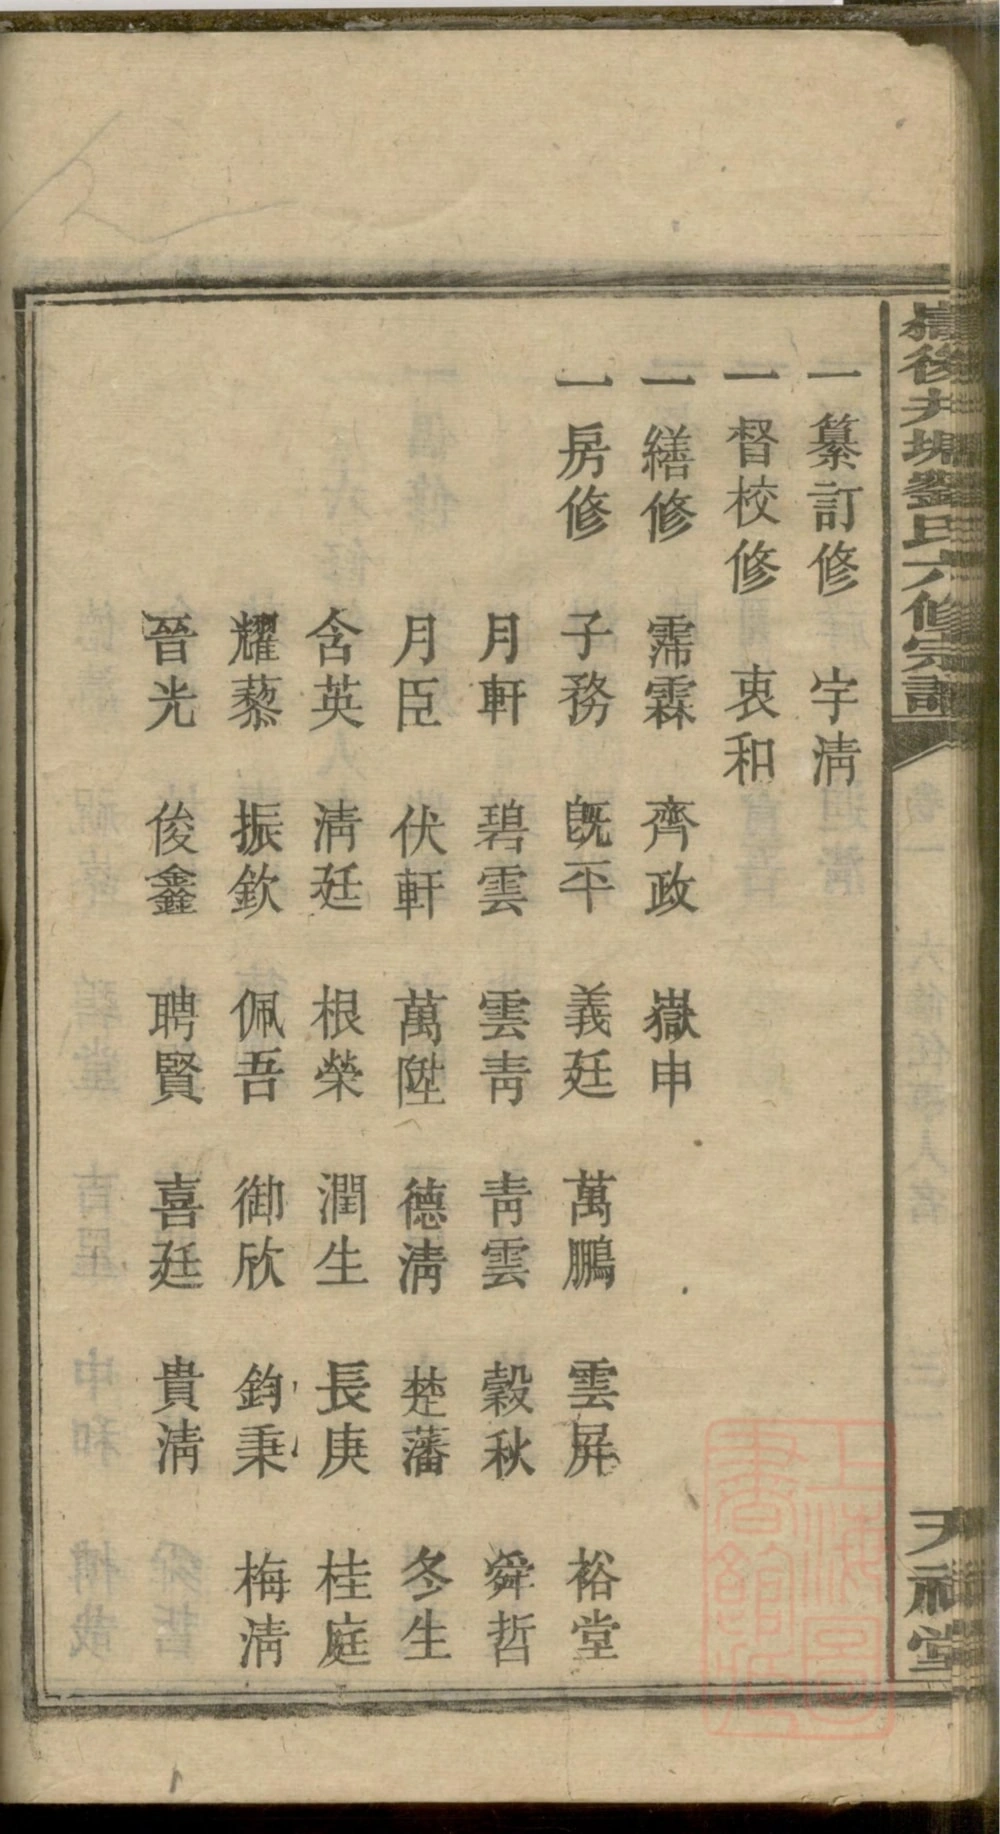 嶽後井塘劉氏六修宗譜
天祿堂
一纂訂修 宇淸
一督校修 衷和
一繕修 霈霖 齊政 嶽申
一房修 子務 旣平 義廷 萬鵬 雲屏 裕堂
月軒 碧雲 雲靑 靑雲 穀秋 舜哲
月臣 伏軒 萬陞 德淸 楚藩 冬生
含英 淸廷 根榮 潤生 長庚 桂庭
耀藜 振欽 佩吾 御欣 鈞秉 梅淸
晉光 俊鑫 聘賢 喜廷 貴淸
上海圖書館藏